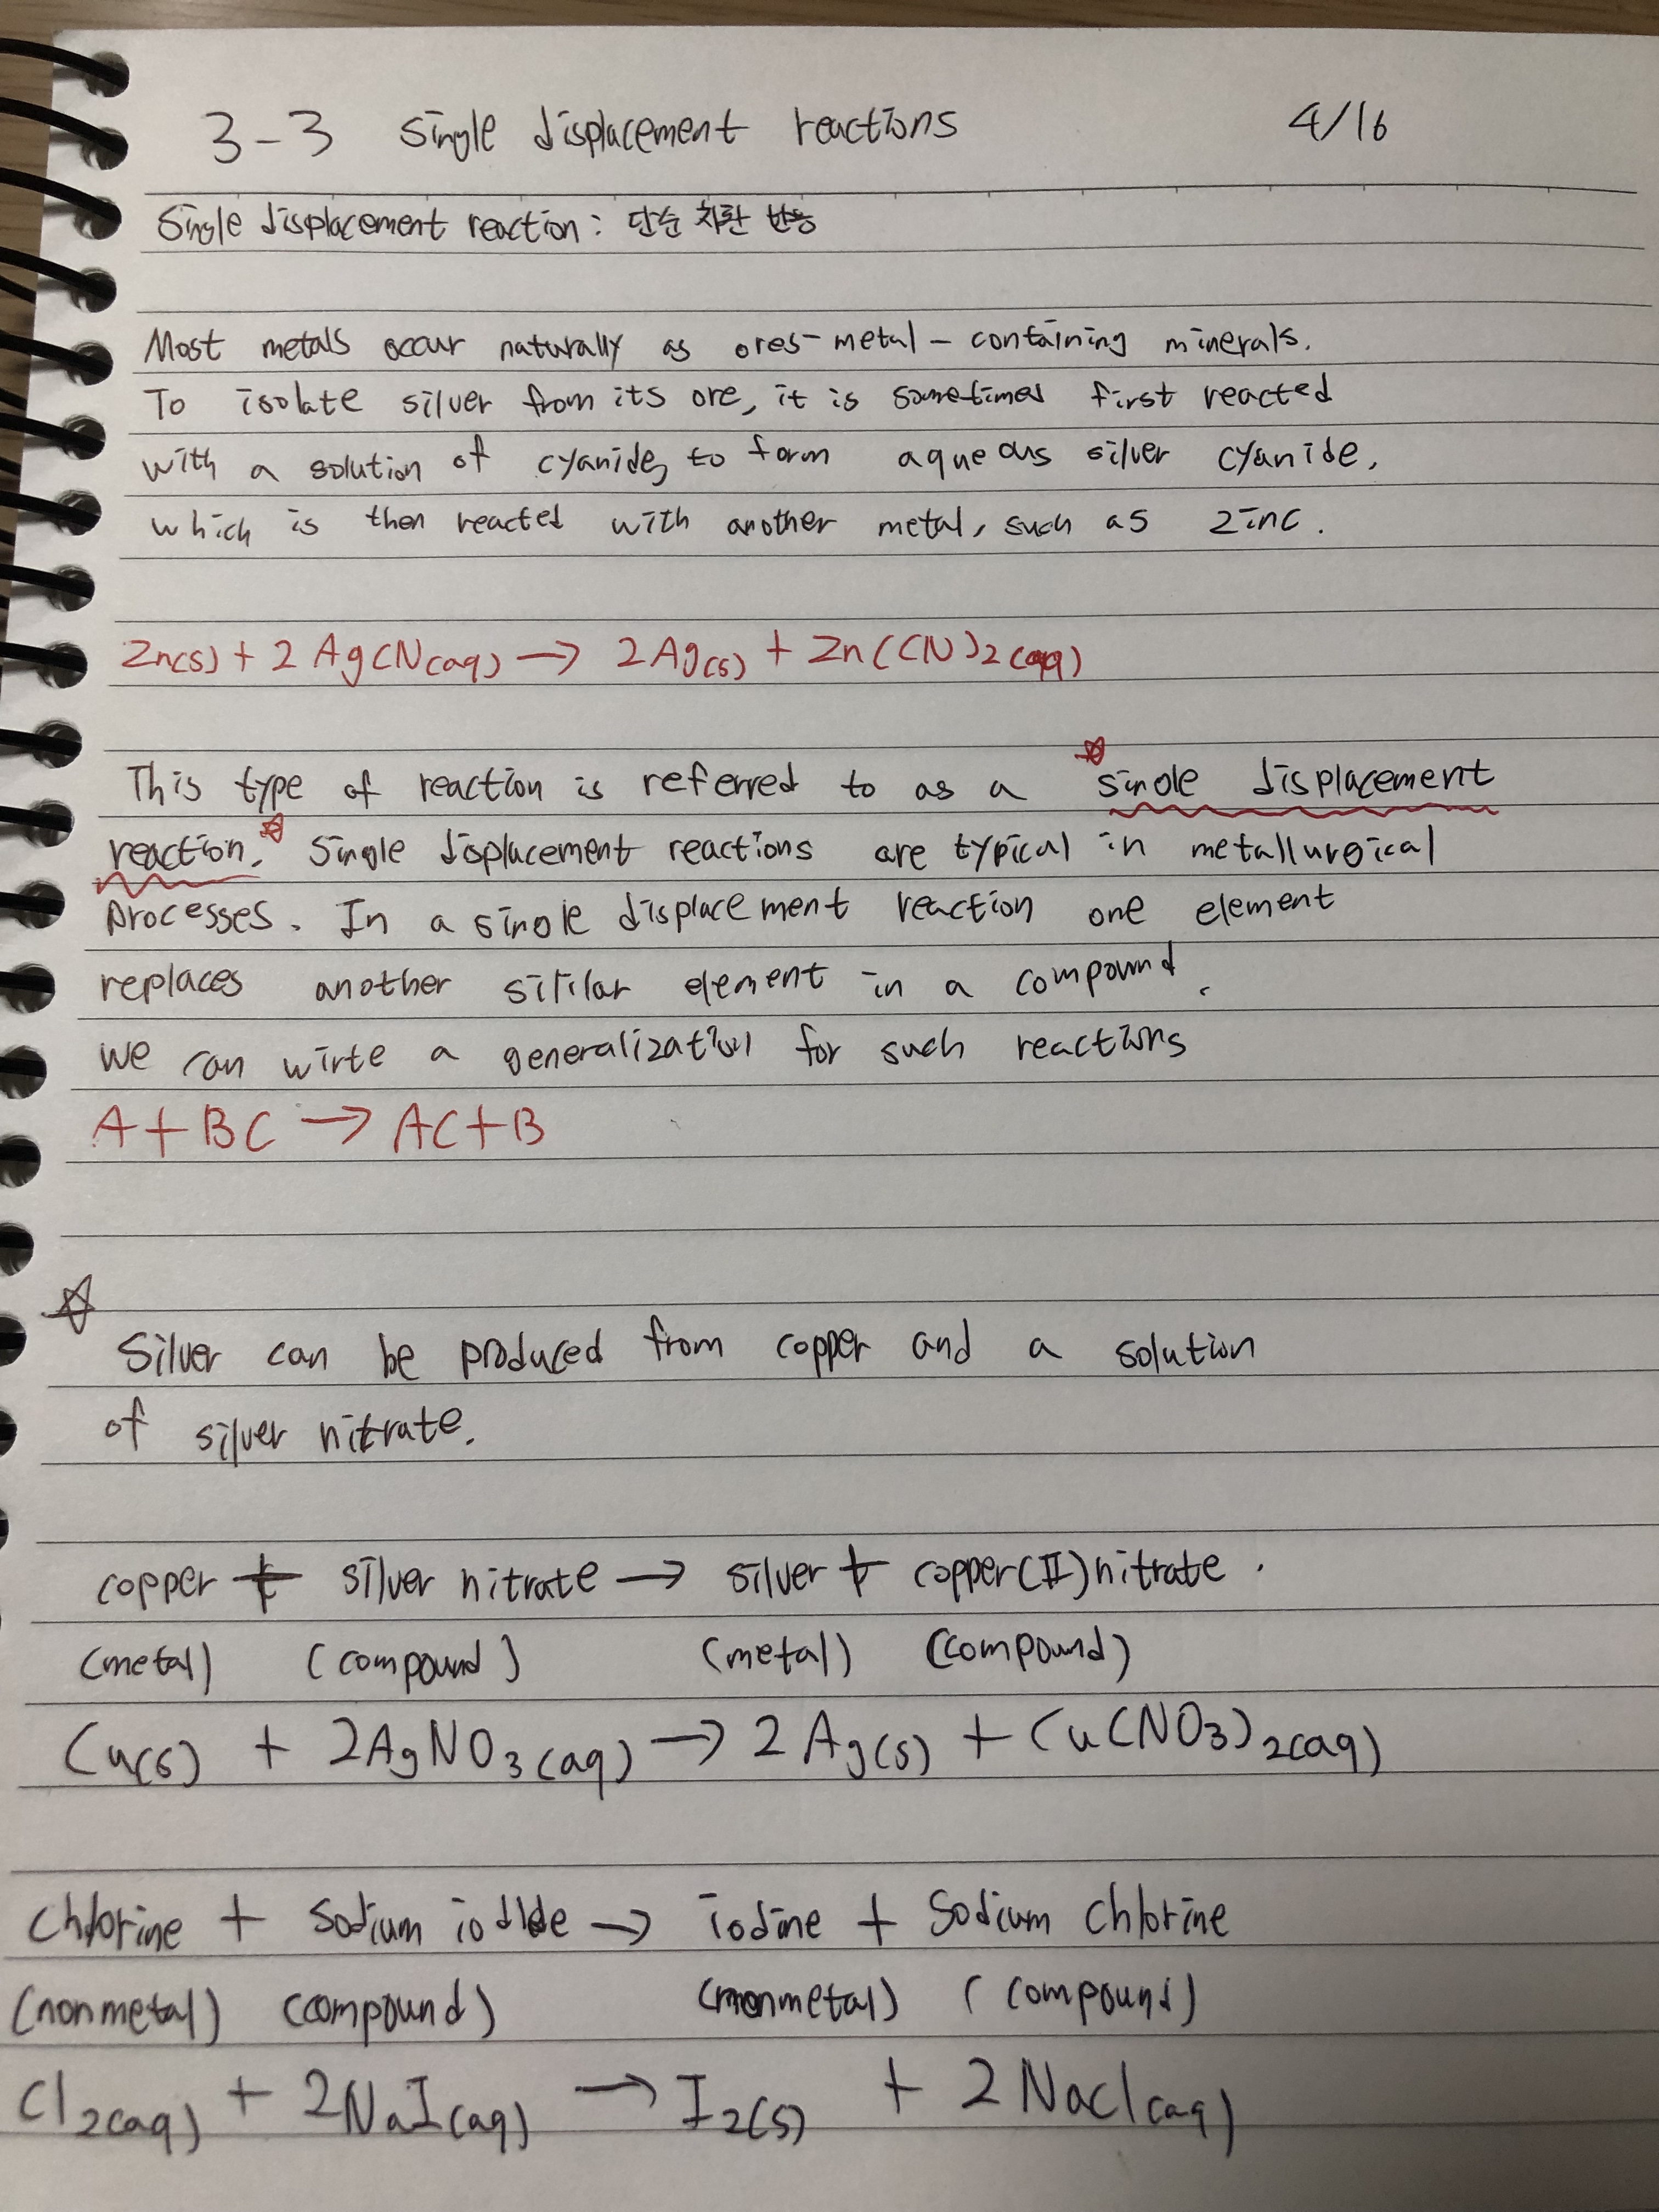 3-3 single displacement reactions 4/16
Single displacement reaction: 단순 치환 반응
Most metals occur naturally as ores-metal-containing minerals.
To isolate silver from its ore, it is sometimes first reacted
with a solution of cyanide, to form aqueous silver cyanide,
which is then reacted with another metal, such as zinc.
Zn(s) + 2AgCN(aq) → 2Ag(s) + Zn(CN)2(aq)
This type of reaction is referred to as a ☆single displacement
reaction.☆ Single displacement reactions are typical in metallurgical
processes. In a single displacement reaction one element
replaces another sililar element in a compound.
We can wirte a generalization for such reactions
A+BC → AC+B
☆
Silver can be produced from copper and a solution
of silver nitrate.
copper + silver nitrate → silver + copper(II)nitrate.
(metal) (compound) (metal) (compound)
Cu(s) + 2AgNO3(aq) → 2Ag(s) + Cu(NO3)2(aq)
Chlorine + Sodium iodide → iodine + Sodium Chlorine
(nonmetal) (compound) (nonmetal) (compound)
Cl2(aq) + 2NaI(aq) → I2(s) + 2NaCl(aq)